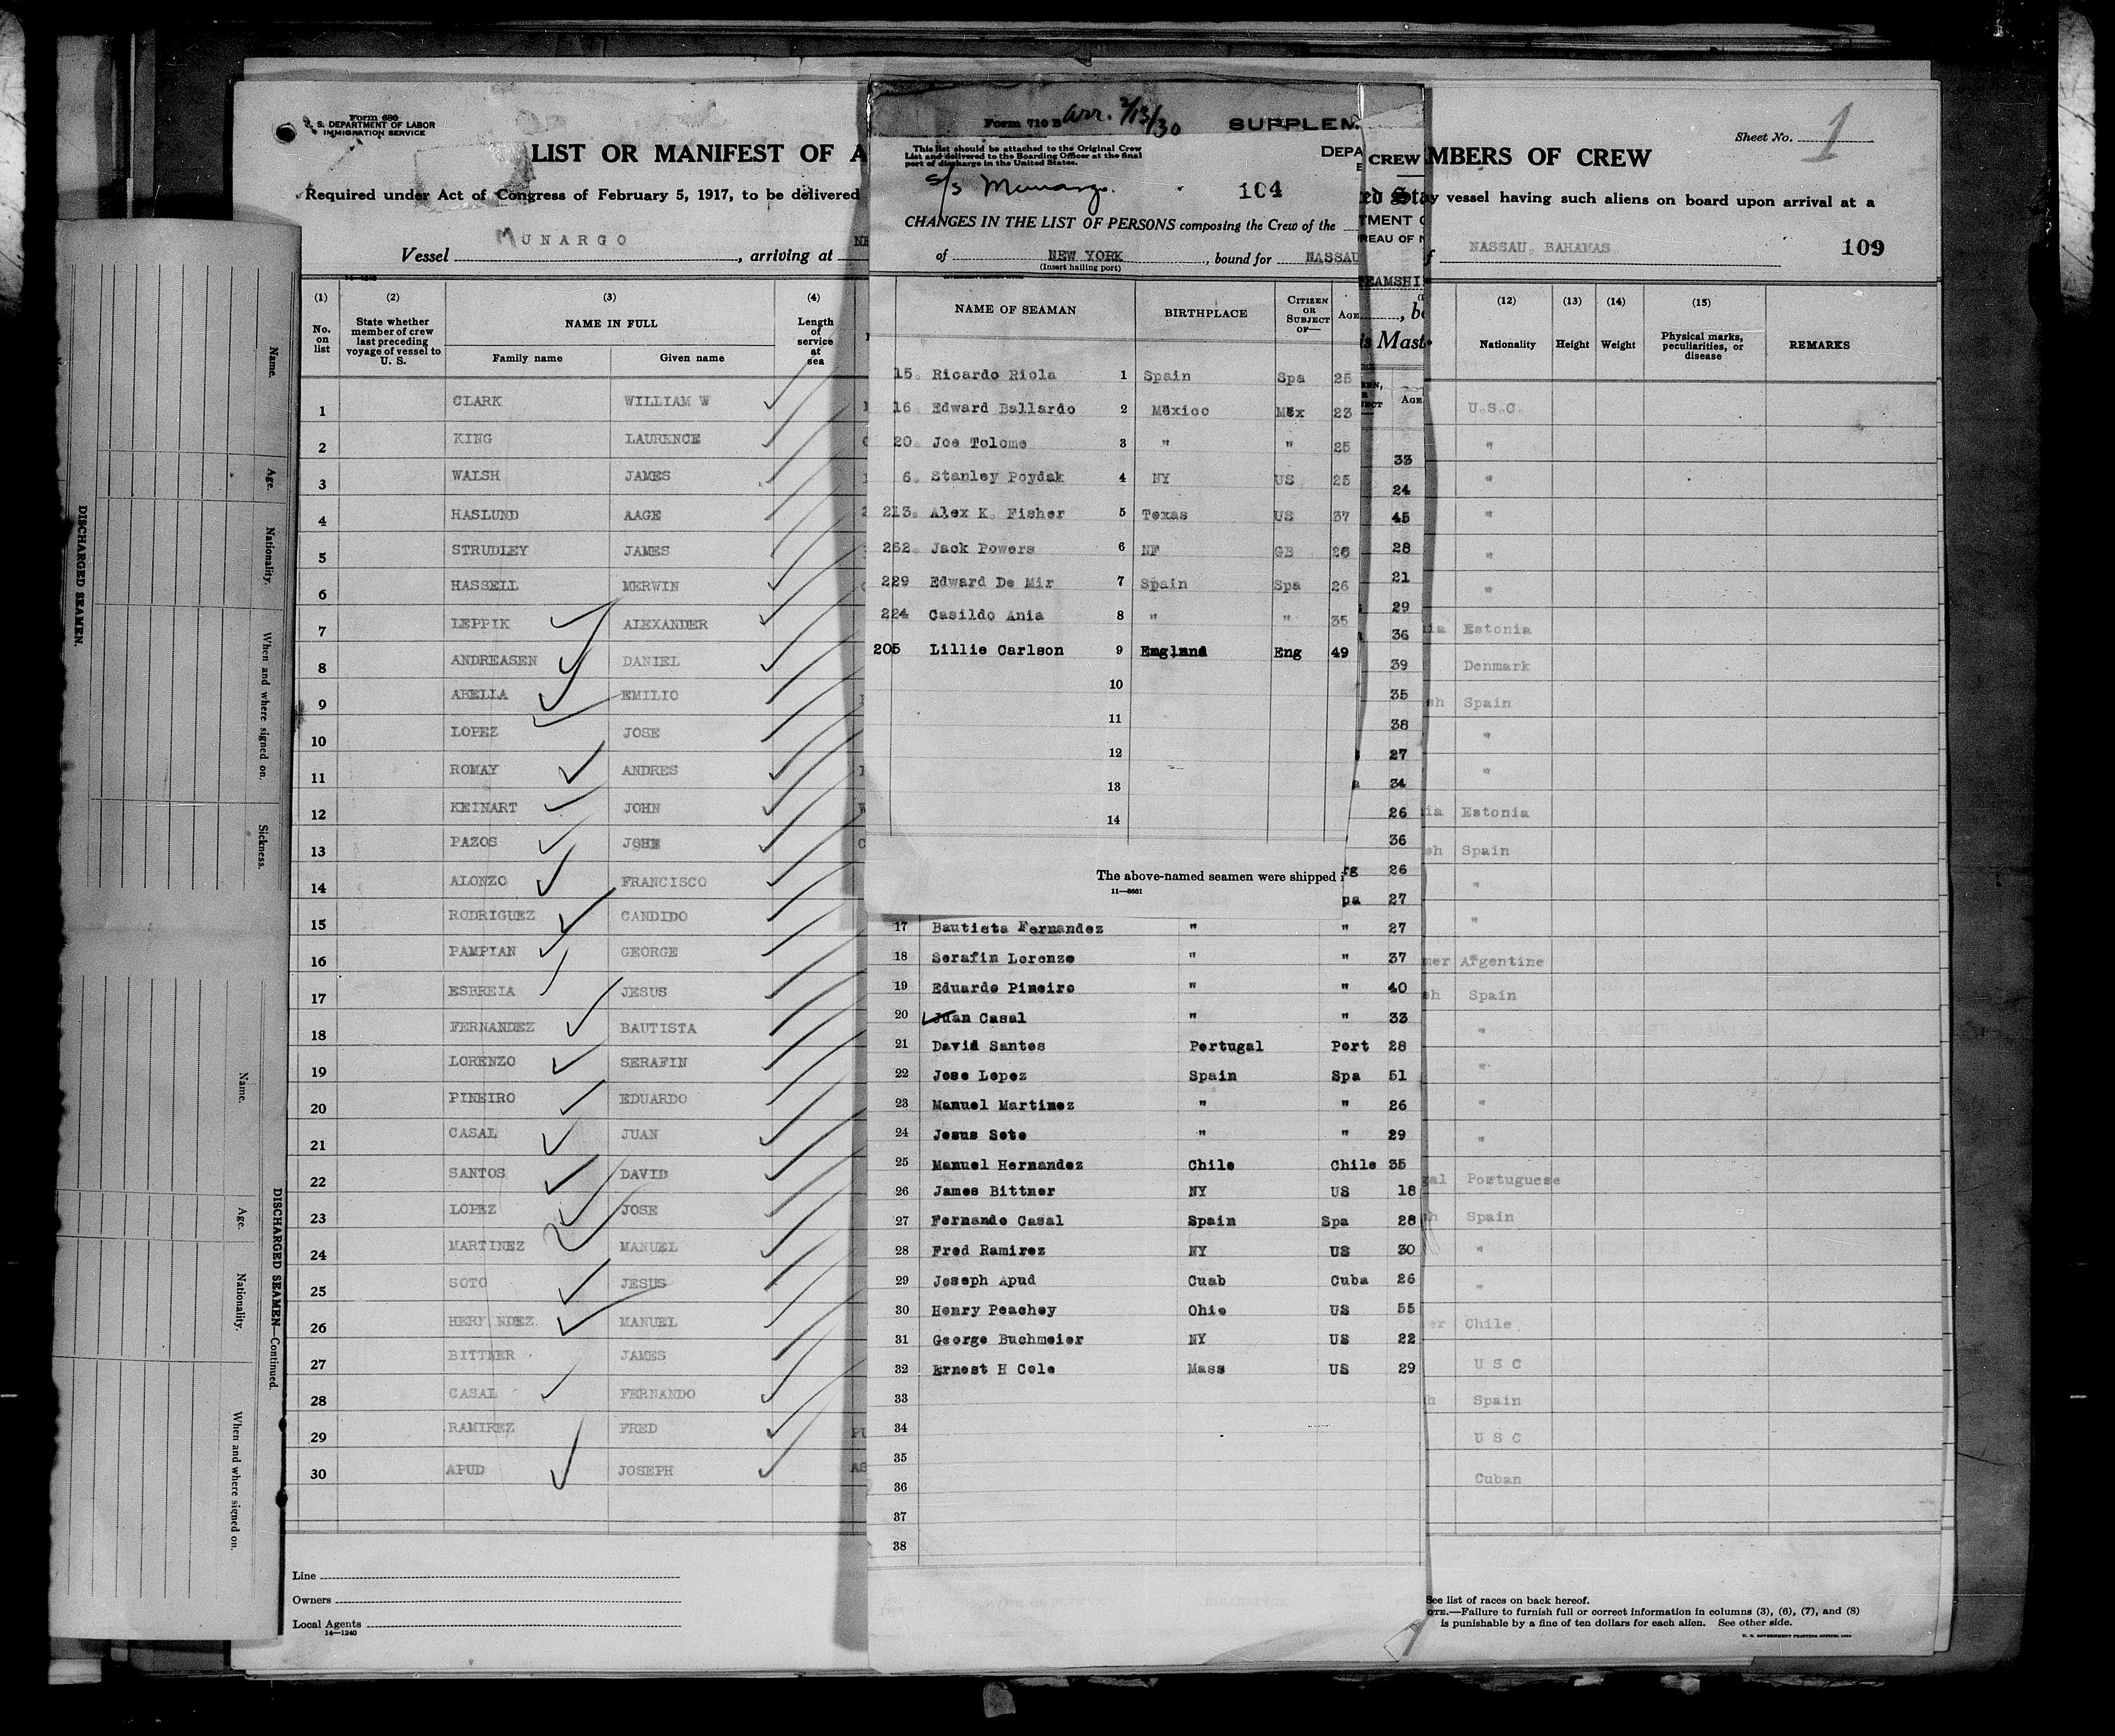 Form 680
U. S. DEPARTMENT OF LABOR
IMMIGRATION SERVICE
LIST OR MANIFEST OF A
Required under Act of Congress of February 5, 1917, to be delivered
Vessel MUNARGO, arriving at NE
(1) (2) (3) (4)
No. on list
State whether member of crew last preceding voyage of vessel to U. S.
NAME IN FULL
Family name Given name
Length of service at sea
1 CLARK WILLIAM W
2 KING LAURENCE
3 WALSH JAMES
4 HASLUND AAGE
5 STRUDLEY JAMES
6 HASSELL MERWIN
7 LEPPIK ALEXANDER
8 ANDREASEN DANIEL
9 ABELLA EMILIO
10 LOPEZ JOSE
11 ROMAY ANDRES
12 KEINART JOHN
13 PAZOS
14 ALONZO FRANCISCO
15 RODRIGUEZ CANDIDO
16 PAMPIAN GEORGE
17 ESBREIA JESUS
18 FERNANDEZ BAUTISTA
19 LORENZO SERAFIN
20 PINEIRO EDUARDO
21 CASAL JUAN
22 SANTOS DAVID
23 LOPEZ JOSE
24 MARTINEZ MANUEL
25 SOTO JESUS
26 HERF NDEZ MANUEL
27 BITTNER JAMES
28 CASAL FERNANDO
29 RAMIREZ FRED
30 APUD JOSEPH
Line
Owners
Local Agents
14—1240
DISCHARGED SEAMEN.
Name.
Age.
Nationality.
When and where signed on.
Sickness.
DISCHARGED SEAMEN—Continued.
Name.
Age.
Nationality.
When and where signed on.
Form 710 B arr. 2/13/30 SUPPLEM
This list should be attached to the Original Crew
List and delivered to the Boarding Officer at the final
port of discharge in the United States.
DEPA
S/S Munargo. 104
CHANGES IN THE LIST OF PERSONS composing the Crew of the
of NEW YORK, bound for NASSAU
(Insert hailing port)
NAME OF SEAMAN BIRTHPLACE CITIZEN OR SUBJECT OF— AGE
15. Ricardo Riola 1 Spain Spa 25
16. Edward Ballardo 2 Mexico Mex 23
20. Joe Tolome 3 " " 25
6. Stanley Poydak 4 NY US 25
213. Alex K. Fisher 5 Texas US 37
252. Jack Powers 6 NF GB 26
229 Edward De Mir 7 Spain Spa 26
224 Casildo Ania 8 " " 35
205 Lillie Carlson 9 England Eng 49
10
11
12
13
14
The above-named seamen were shipped i
11—8661
CREW
ed Sta
TMENT O
REAU OF N
EAMSHI
, bo
s Mast
AGE
33
24
45
28
21
29
36
39
35
38
27
34
26
36
rg 26
pa 27
17 Bautista Fernandez " " 27
18 Serafin Lorenzo " " 37
19 Eduardo Pineiro " " 40
20 Juan Casal " " 33
21 David Santos Portugal Port 28
22 Jose Lopez Spain Spa 51
23 Manuel Martinez " " 26
24 Jesus Soto " " 29
25 Manuel Hernandez Chile Chile 35
26 James Bittner NY US 18
27 Fernando Casal Spain Spa 28
28 Fred Ramirez NY US 30
29 Joseph Apud Cuab Cuba 26
30 Henry Peachey Ohio US 55
31 George Buchmeier NY US 22
32 Ernest H Cole Mass US 29
33
34
35
36
37
38
Sheet No. 1
MBERS OF CREW
y vessel having such aliens on board upon arrival at a
f NASSAU, BAHAMAS 109
(12) (13) (14) (15)
Nationality Height Weight Physical marks, peculiarities, or disease REMARKS
U.S.C.
"
"
"
"
"
ia Estonia
Denmark
sh Spain
"
"
ia Estonia
sh Spain
"
"
ner Argentine
sh Spain
"
"
"
"
gal Portuguese
h Spain
"
"
er Chile
U S C
h Spain
U S C
Cuban
See list of races on back hereof.
OTE.—Failure to furnish full or correct information in columns (3), (6), (7), and (8)
is punishable by a fine of ten dollars for each alien. See other side.